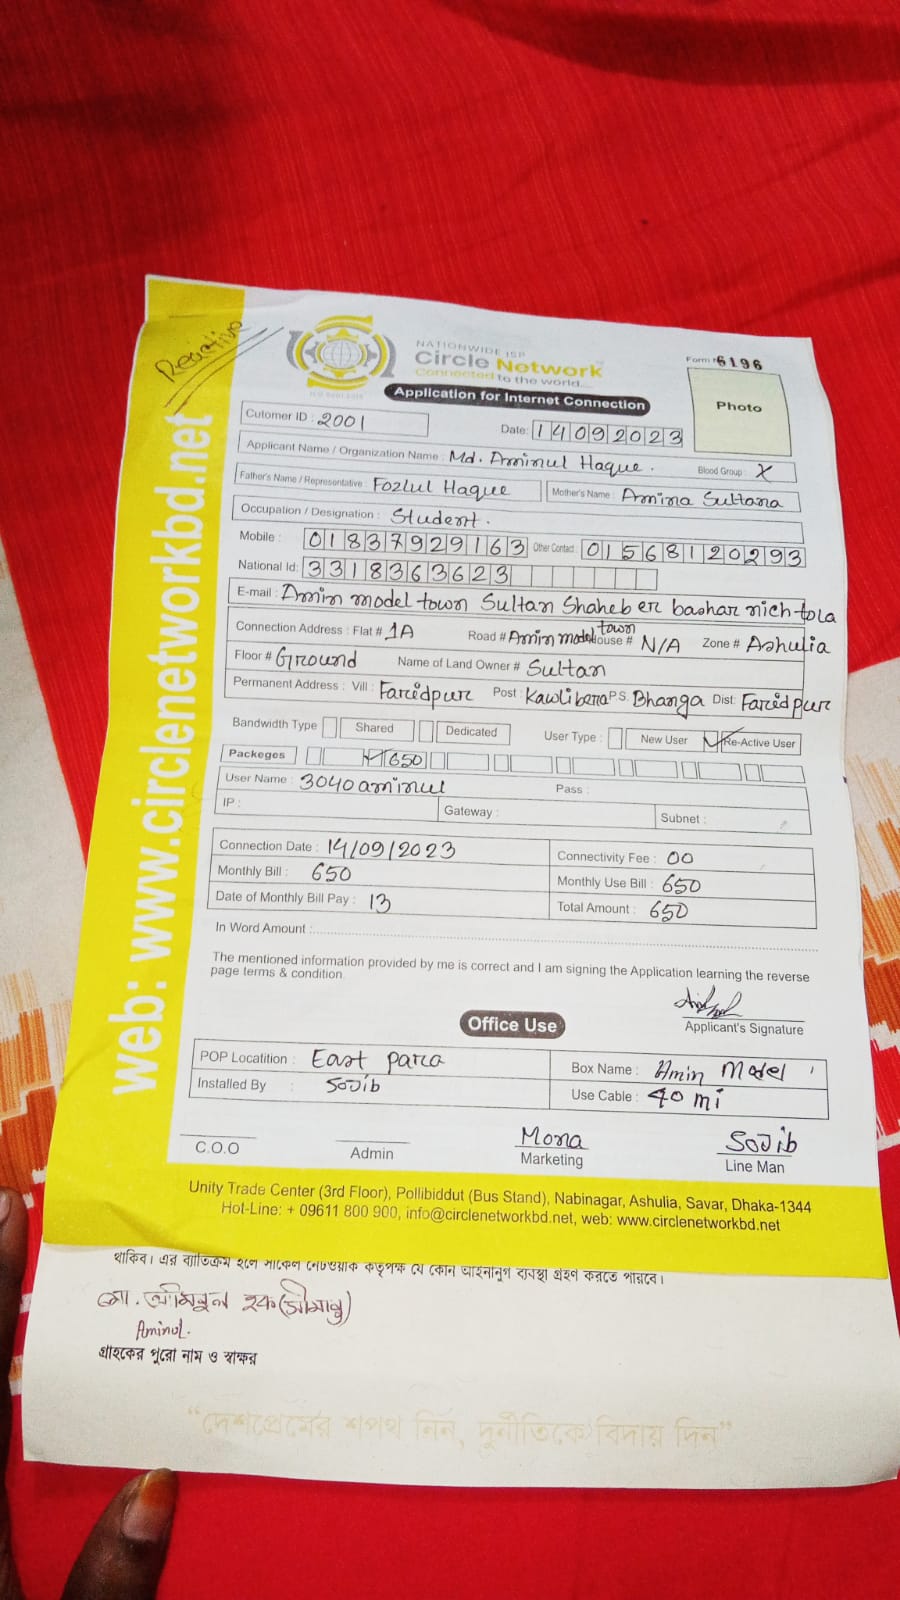 Reactive
NATIONWIDE ISP
Circle Network
Connected to the world....
ISO 9001:2015
Form # 6196
Application for Internet Connection
Photo
Cutomer ID : 2001
Date: 14092023
Applicant Name / Organization Name : Md. Aminul Haque. Blood Group : X
Father's Name / Representative : Fozlul Haque Mother's Name : Amina Sultana
Occupation / Designation : Student.
Mobile : 01837929163 Other Contact : 01568120293
National Id: 3318363623
E-mail : Amin model town Sultan Shaheb er bashar nich tola
Connection Address : Flat # 1A Road # Amin model town House # N/A Zone # Ashulia
Floor # Ground Name of Land Owner # Sultan
Permanent Address : Vill : Faridpur Post : Kawlibera P.S. Bhanga Dist: Faridpur
Bandwidth Type Shared Dedicated User Type : New User ✓ Re-Active User
Packeges ✓ 650
User Name : 3040aminul Pass :
IP : Gateway : Subnet :
Connection Date : 14/09/2023 Connectivity Fee : 00
Monthly Bill : 650 Monthly Use Bill : 650
Date of Monthly Bill Pay : 13 Total Amount : 650
In Word Amount :
The mentioned information provided by me is correct and I am signing the Application learning the reverse
page terms & condition.
Applicant's Signature
Office Use
POP Locatition : East para Box Name : Amin Model
Installed By : Sojib Use Cable : 40 mi
Mona Sojib
C.O.O Admin Marketing Line Man
Unity Trade Center (3rd Floor), Pollibiddut (Bus Stand), Nabinagar, Ashulia, Savar, Dhaka-1344
Hot-Line: + 09611 800 900, info@circlenetworkbd.net, web: www.circlenetworkbd.net
web: www.circlenetworkbd.net
থাকিব। এর ব্যতিক্রম হলে সার্কেল নেটওয়ার্ক কতৃপক্ষ যে কোন আইনানুগ ব্যবস্থা গ্রহণ করতে পারবে।
মো. আমিনুল হক (সীমান্ত)
Aminul.
গ্রাহকের পুরো নাম ও স্বাক্ষর
“দেশপ্রেমের শপথ নিন, দুর্নীতিকে বিদায় দিন”